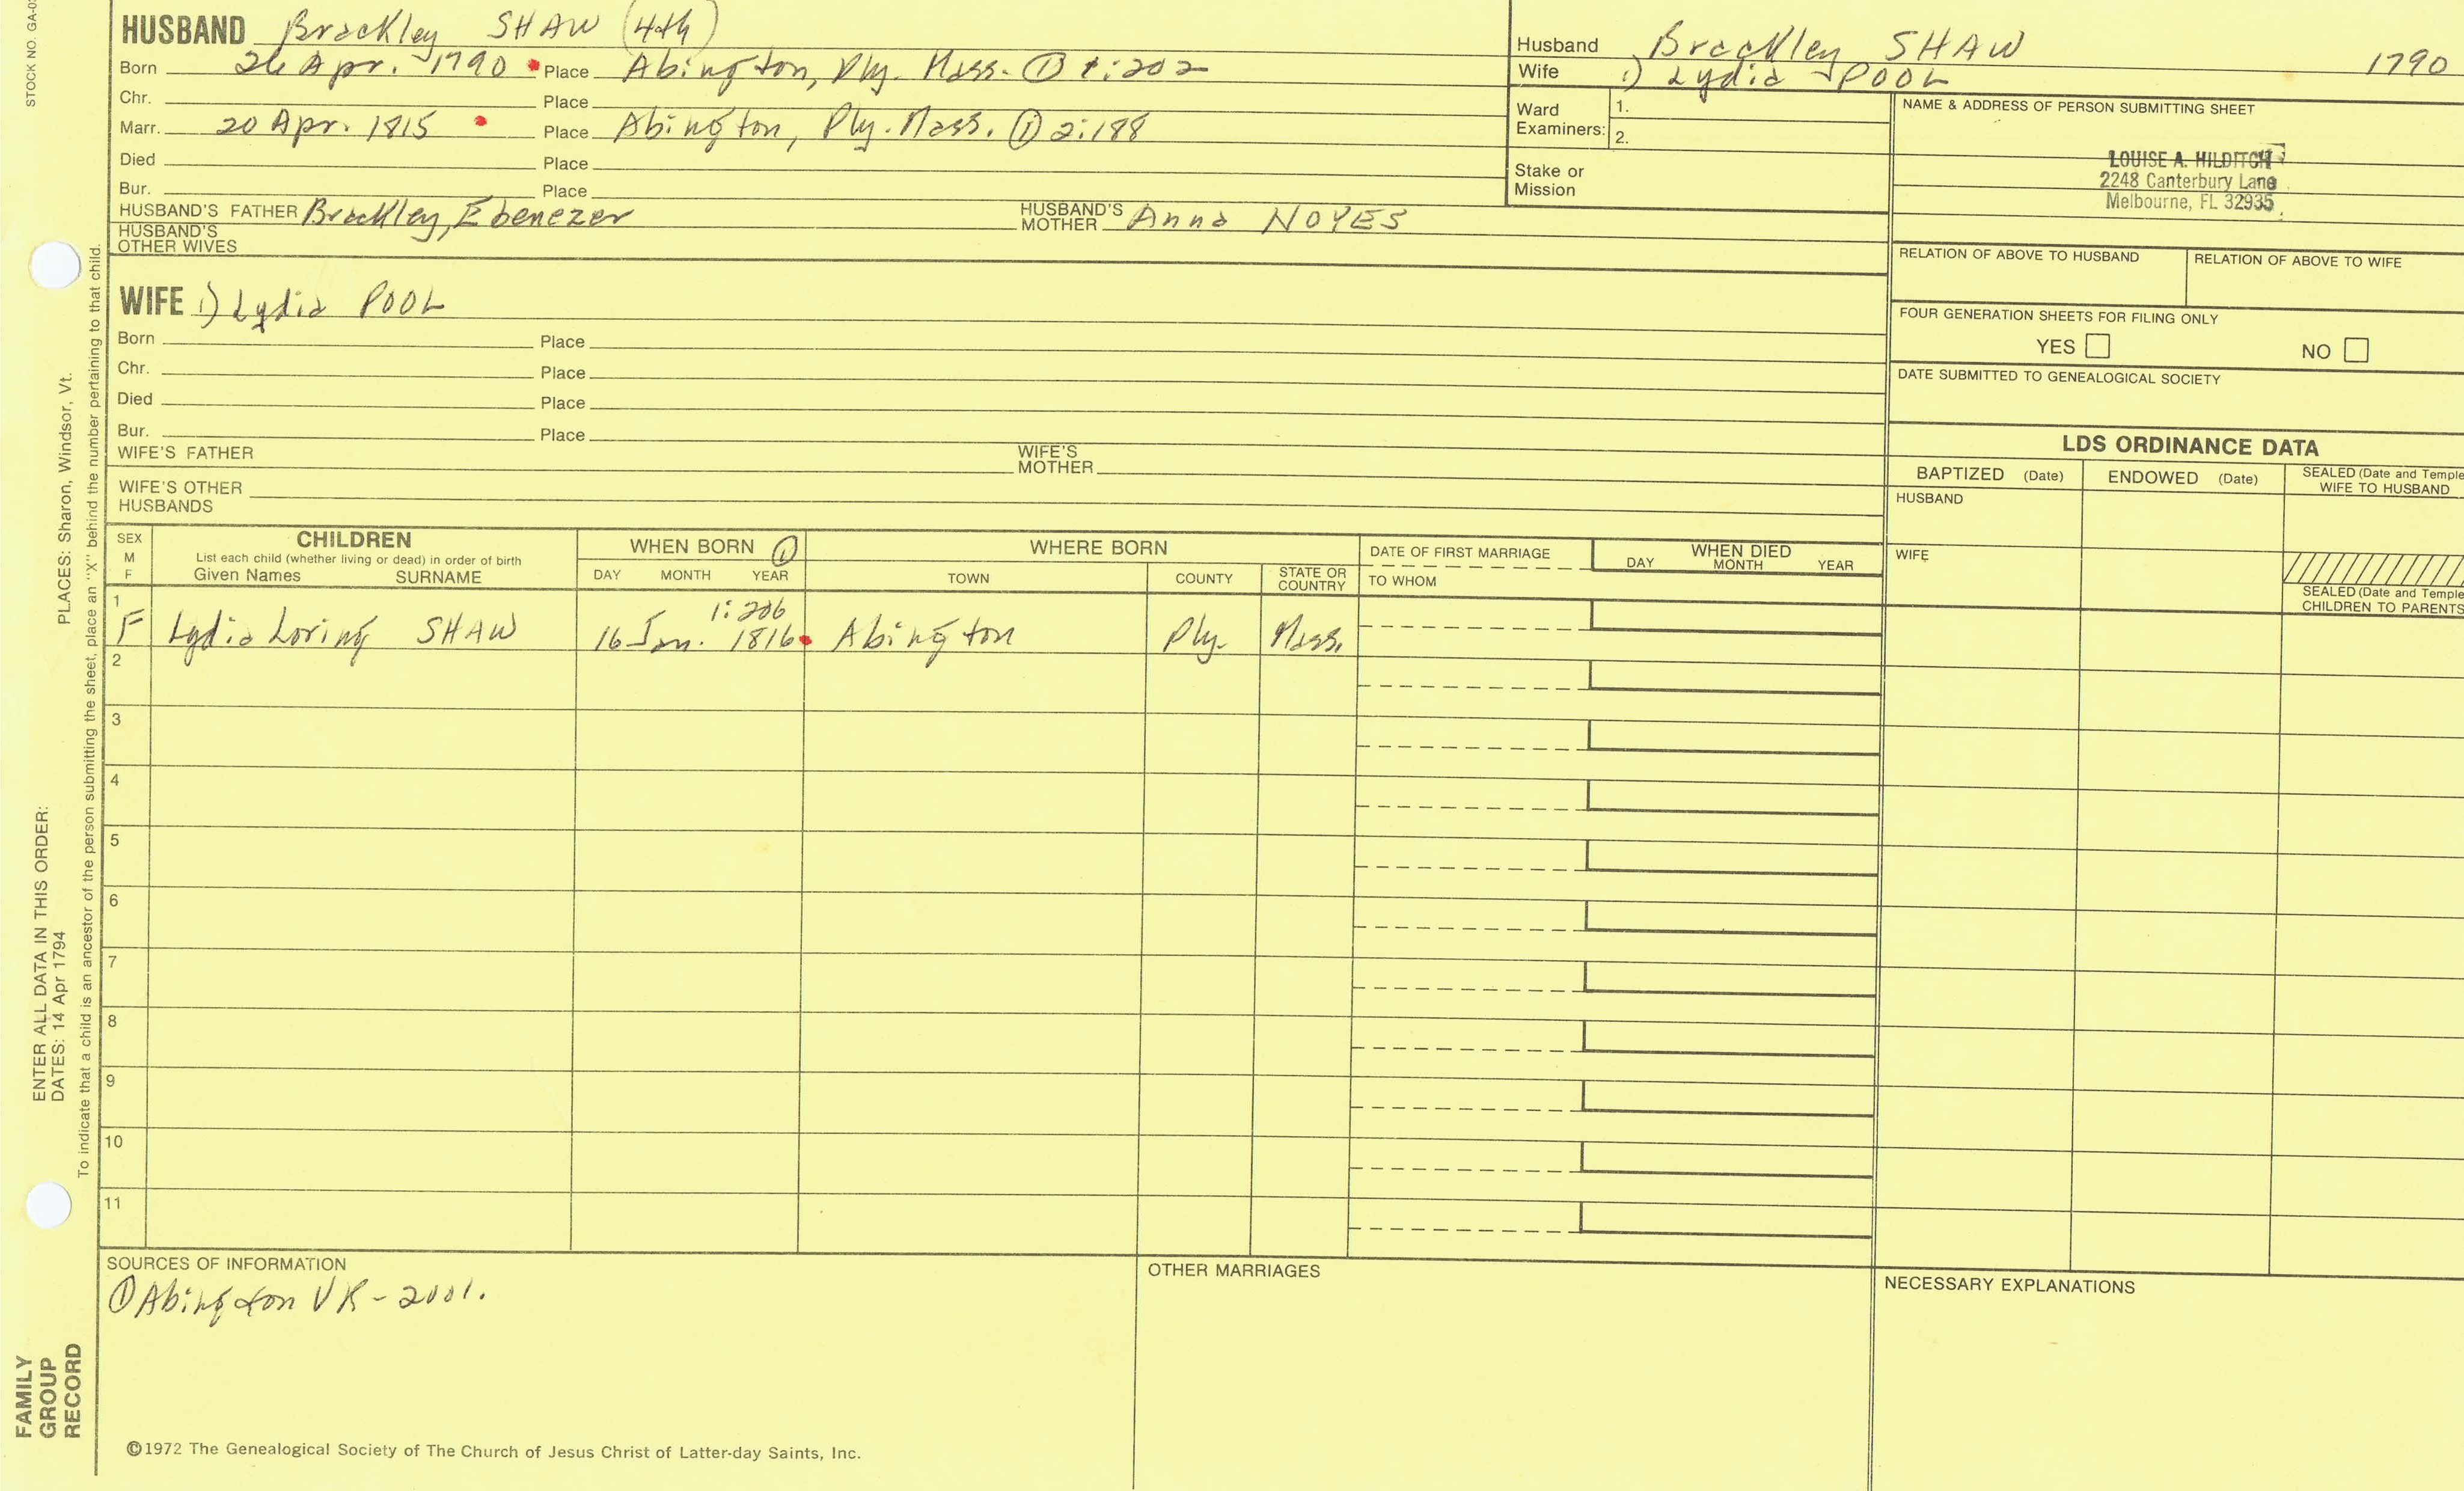 STOCK NO. GA-0
HUSBAND Brackley SHAW (4th)
Born 26 Apr. 1790 Place Abington, Ply. Mass. ① 1:202
Chr. Place
Marr. 20 Apr. 1815 Place Abington, Ply. Mass. ① 2:188
Died Place
Bur. Place
HUSBAND'S FATHER Brackley, Ebenezer HUSBAND'S MOTHER Anna NOYES
HUSBAND'S OTHER WIVES
WIFE 1) Lydia POOL
Born Place
Chr. Place
Died Place
Bur. Place
WIFE'S FATHER WIFE'S MOTHER
WIFE'S OTHER HUSBANDS
Husband Brackley SHAW 1790
Wife 1) Lydia POOL
Ward Examiners: 1.
2.
Stake or Mission
NAME & ADDRESS OF PERSON SUBMITTING SHEET
LOUISE A. HILDITCH
2248 Canterbury Lane
Melbourne, FL 32935
RELATION OF ABOVE TO HUSBAND RELATION OF ABOVE TO WIFE
FOUR GENERATION SHEETS FOR FILING ONLY
YES NO
DATE SUBMITTED TO GENEALOGICAL SOCIETY
LDS ORDINANCE DATA
BAPTIZED (Date) ENDOWED (Date) SEALED (Date and Temple
WIFE TO HUSBAND
HUSBAND
WIFE
SEALED (Date and Temple
CHILDREN TO PARENTS
SEX M F
CHILDREN
List each child (whether living or dead) in order of birth
Given Names SURNAME
WHEN BORN ①
DAY MONTH YEAR
WHERE BORN
TOWN COUNTY STATE OR COUNTRY
DATE OF FIRST MARRIAGE
TO WHOM
WHEN DIED
DAY MONTH YEAR
1
1:206
F Lydia Loring SHAW 16 Jan. 1816 Abington Ply. Mass.
2
3
4
5
6
7
8
9
10
11
SOURCES OF INFORMATION
① Abington VR - 2001.
OTHER MARRIAGES
NECESSARY EXPLANATIONS
©1972 The Genealogical Society of The Church of Jesus Christ of Latter-day Saints, Inc.
ENTER ALL DATA IN THIS ORDER:
DATES: 14 Apr 1794
PLACES: Sharon, Windsor, Vt.
To indicate that a child is an ancestor of the person submitting the sheet, place an "X" behind the number pertaining to that child.
FAMILY
GROUP
RECORD